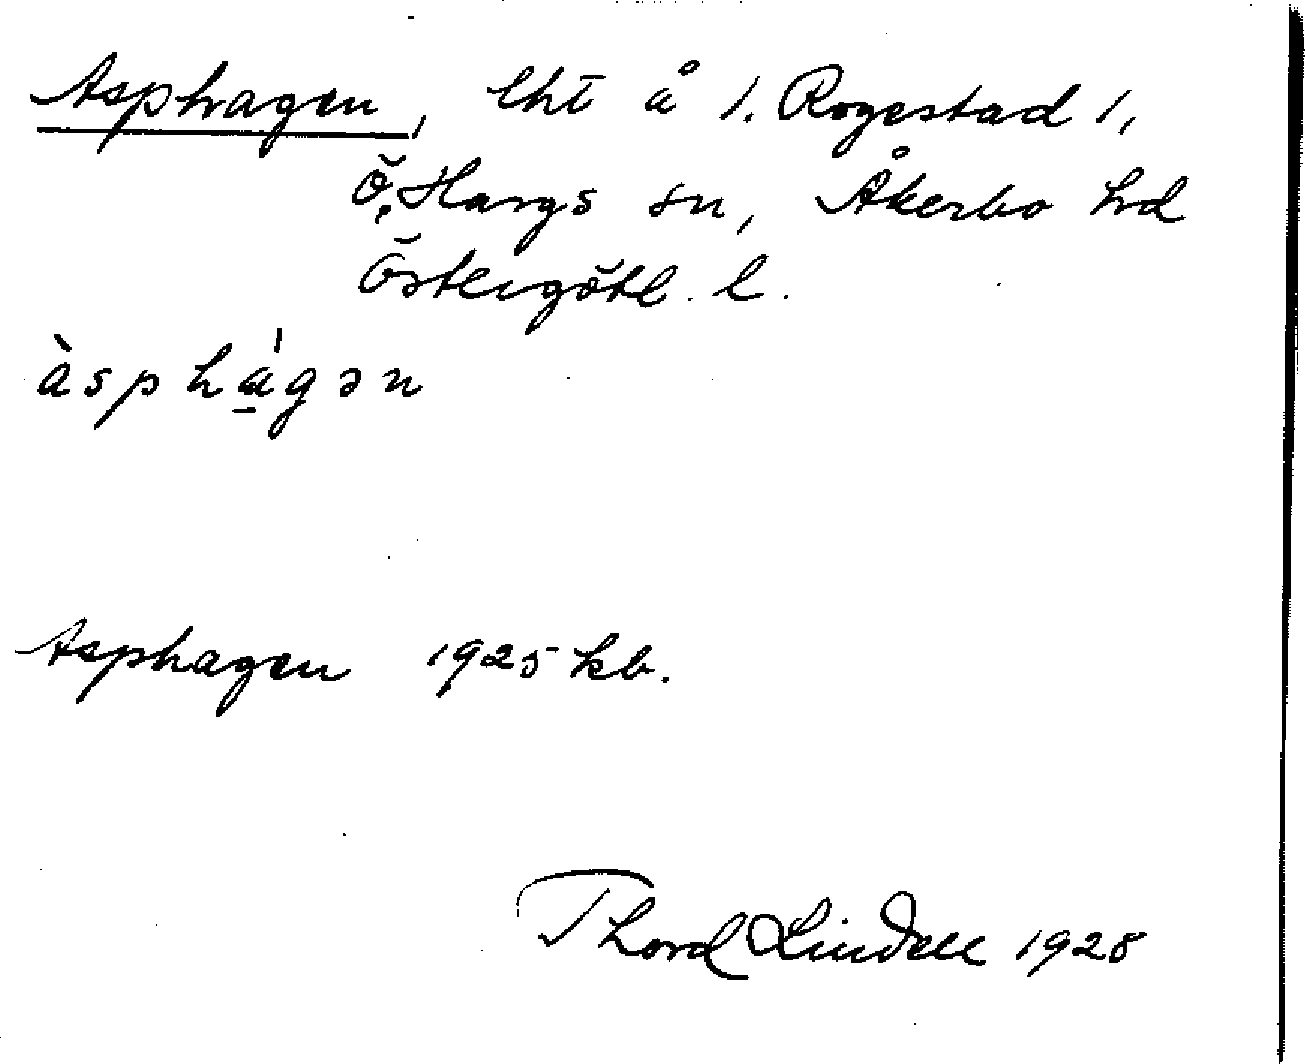 Asphagen, lht å 1. Rogestad 1,
Ö. Hargs sn, Åkerbo hd
Östergötl. l.
àsphág̱ən
Asphagen 1925 kb.
Thord Lindell 1928